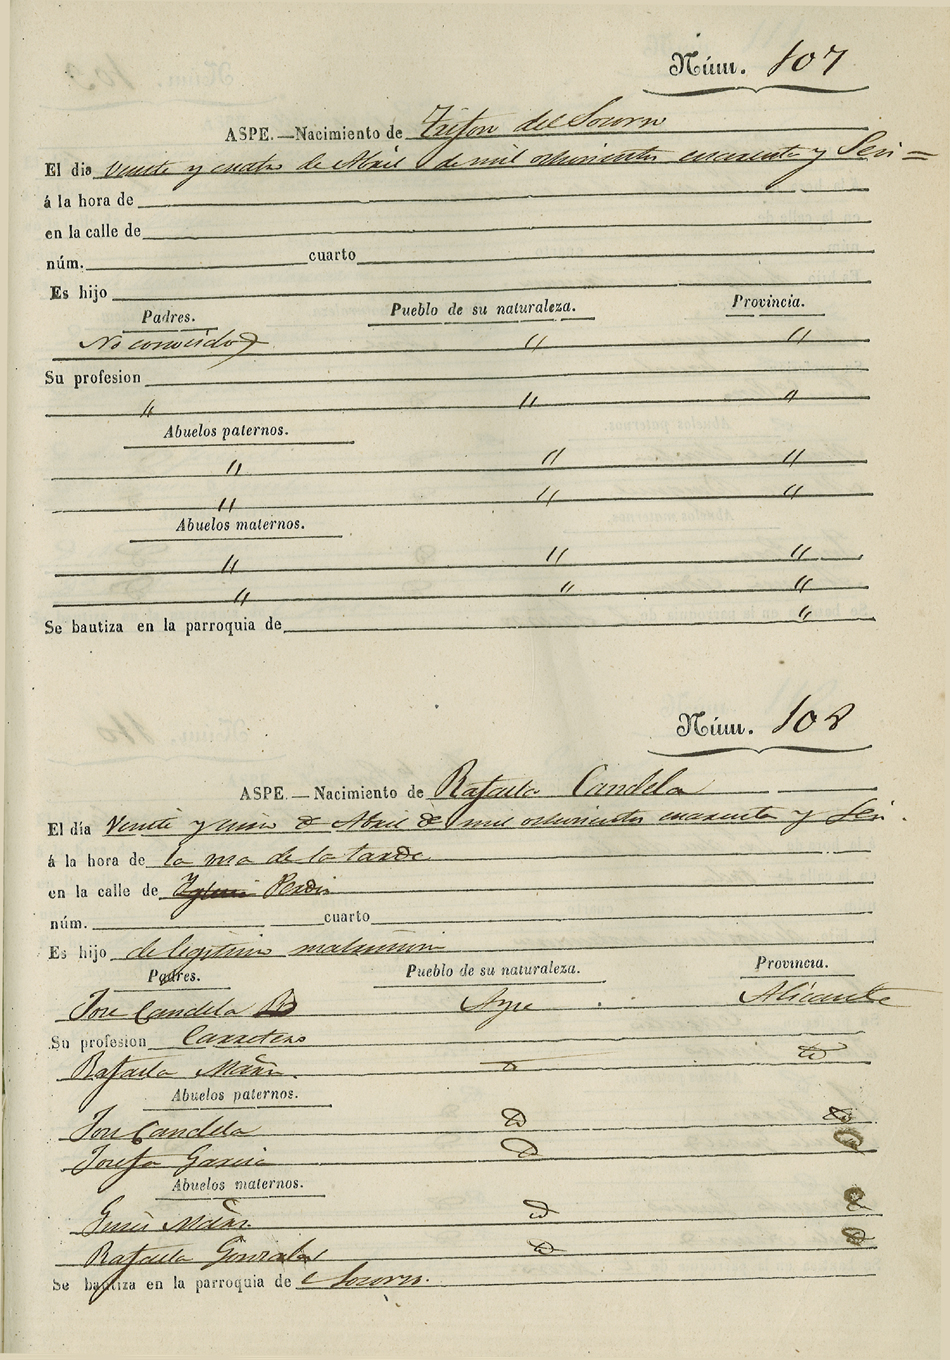 Núm. 107
ASPE.—Nacimiento de Trifon del Socorro
El dia veinte y cuatro de Abril de mil ochocientos cuarenta y Seis =
á la hora de
en la calle de
núm. cuarto
Es hijo
Padres. Pueblo de su naturaleza. Provincia.
No conocidos " "
Su profesion
" " "
Abuelos paternos.
" " "
" " "
Abuelos maternos.
" " "
" " "
Se bautiza en la parroquia de "
Núm. 108
ASPE.—Nacimiento de Rafaela Candela
El día Veinte y cinco de Abril de mil ochocientos cuarenta y Seis.
á la hora de la una de la tarde
en la calle de
núm. cuarto
Es hijo de legitimo matrimonio
Padres. Pueblo de su naturaleza. Provincia.
Jose Candela Aspe Alicante
Su profesion Carretero
Rafaela Mañ
Abuelos paternos.
Jose Candela
Josefa Garcia
Abuelos maternos.
Rafaela Gonzalez
Se bautiza en la parroquia de Socorro.